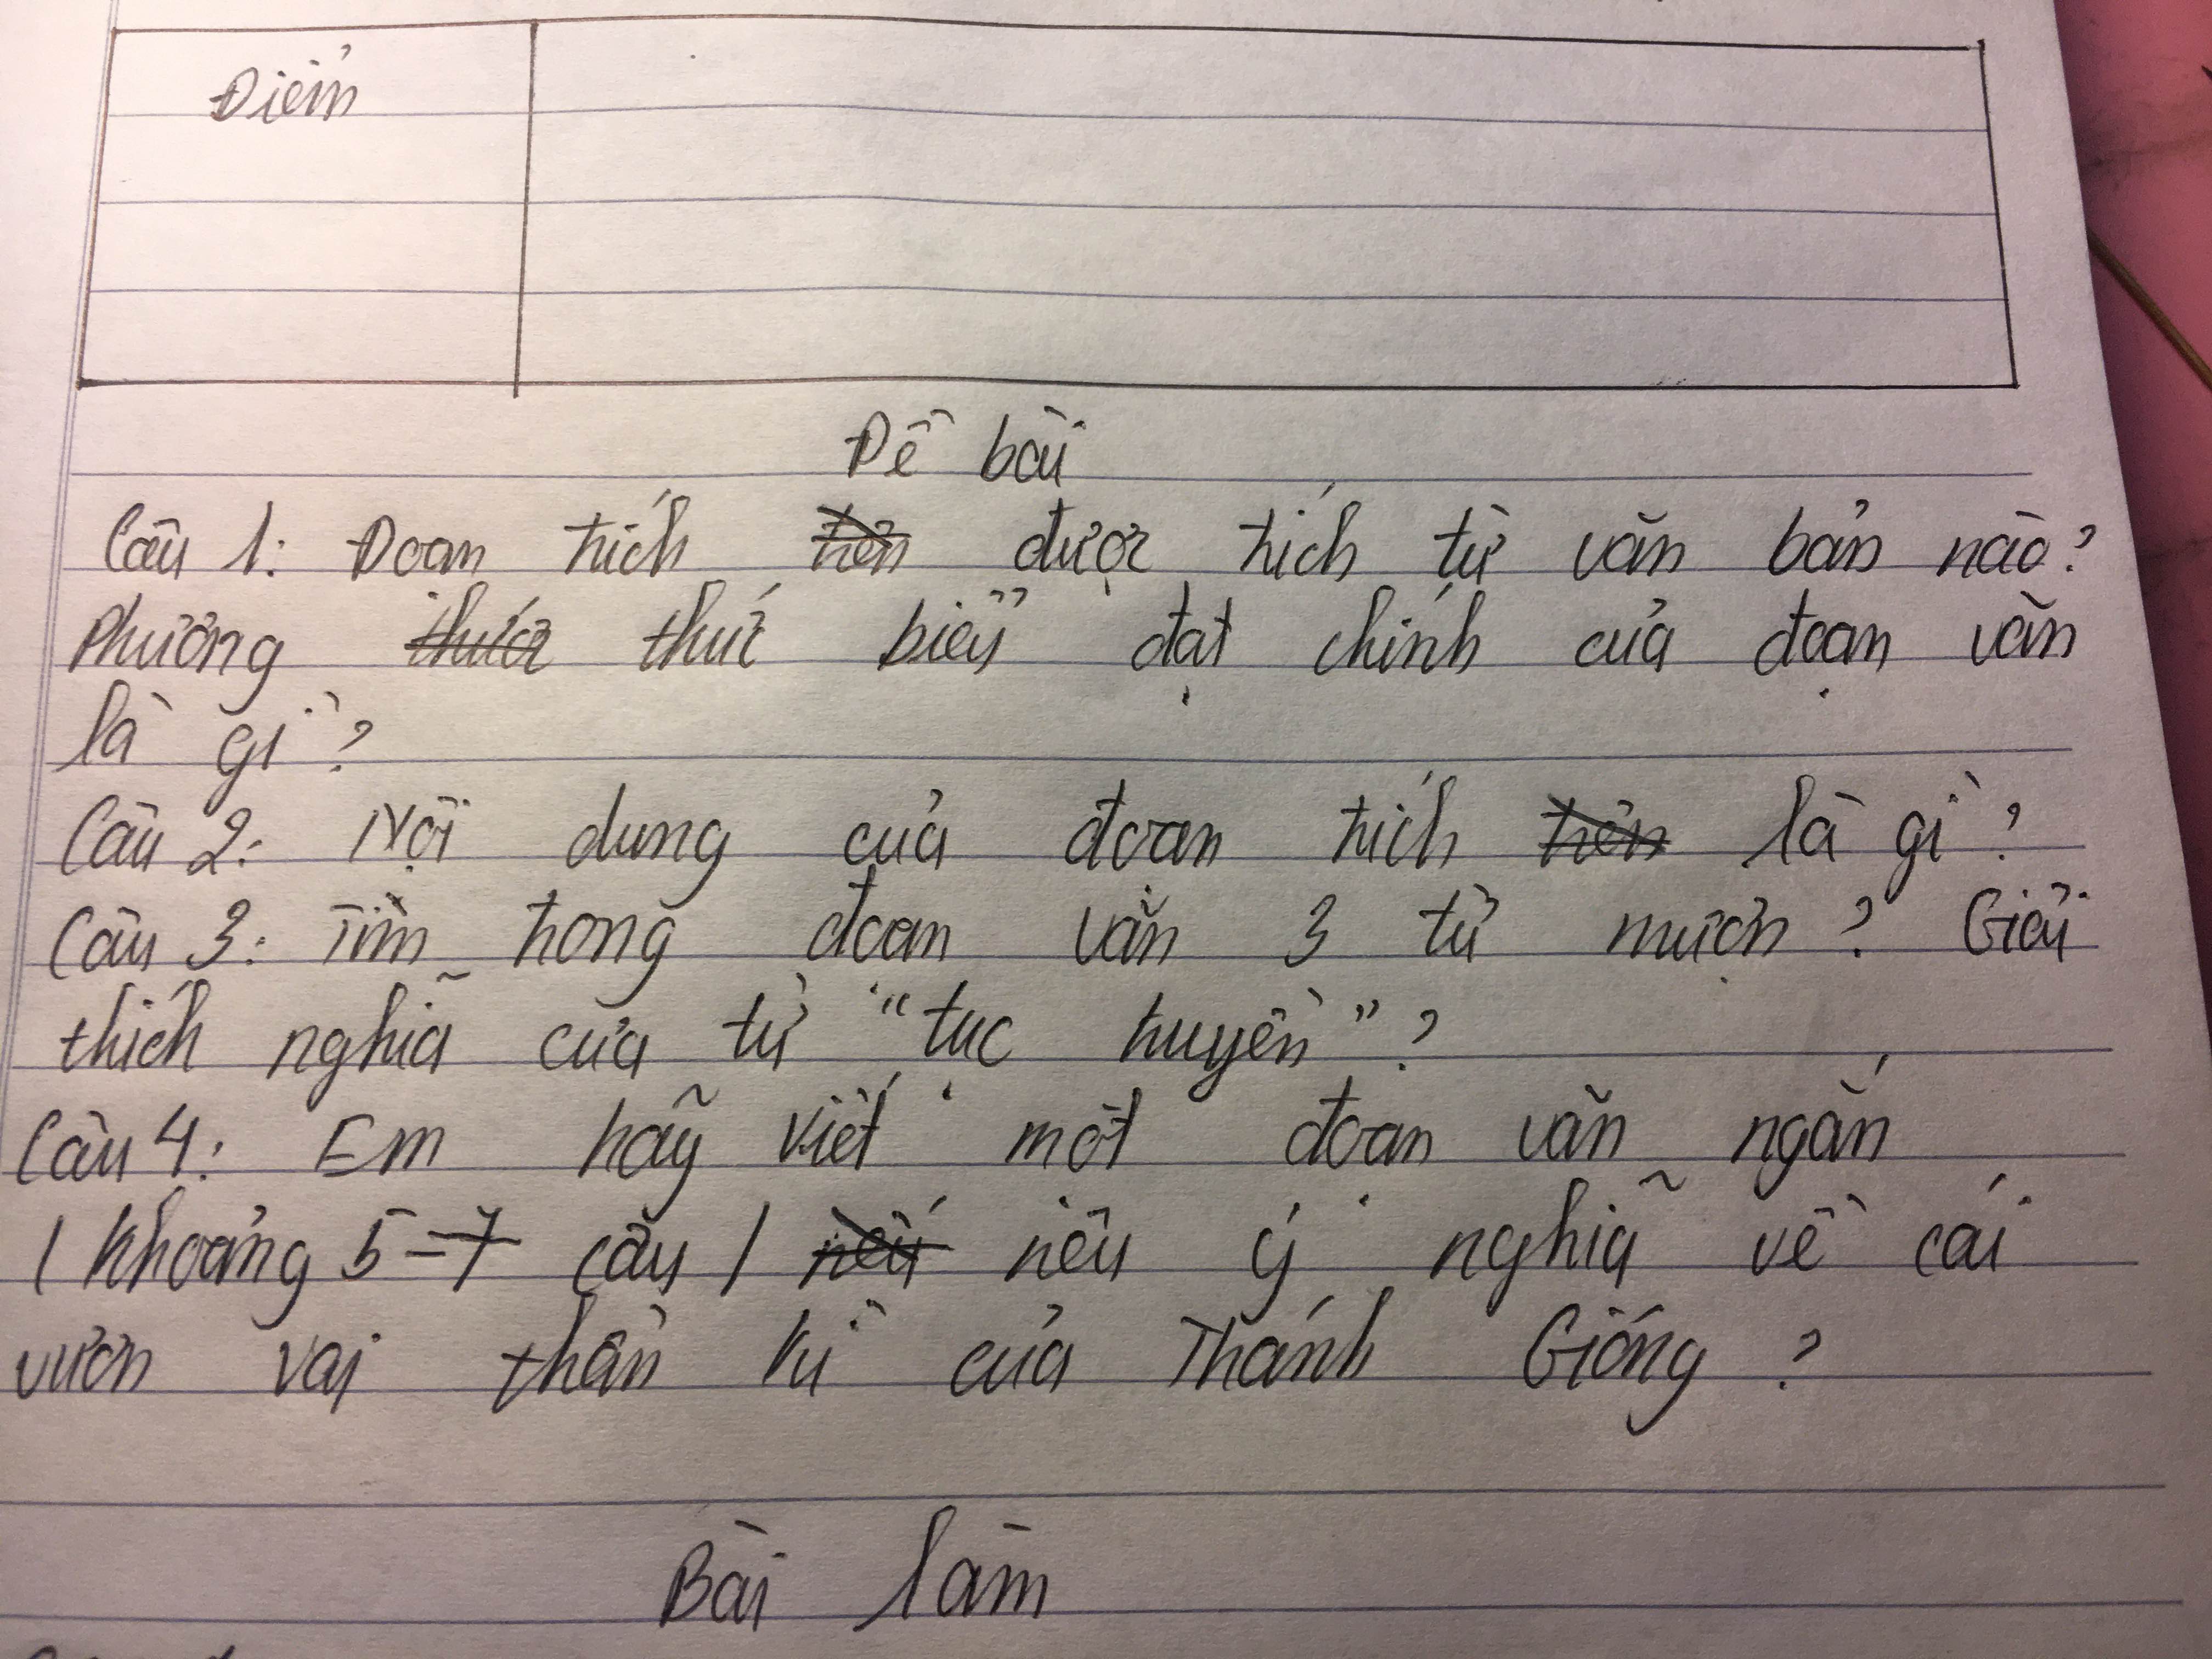 Điểm
Đề bài
Câu 1: Đoạn trích trên được trích từ văn bản nào?
Phương thức thức biểu đạt chính của đoạn văn
là gì?
Câu 2: Nội dung của đoạn trích trên là gì?
Câu 3: Tìm trong đoạn văn 3 từ mượn? Giải
thích nghĩa của từ "tục truyền"?
Câu 4: Em hãy viết một đoạn văn ngắn
( Khoảng 5-7 câu ) nêu ý nghĩa về cái
vươn vai thần kì của Thánh Gióng?
Bài làm